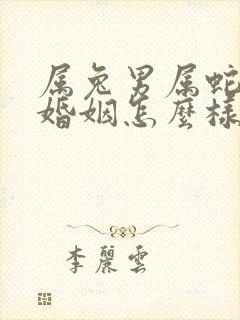 属兔男属蛇
婚姻怎麼樣
李麗雲